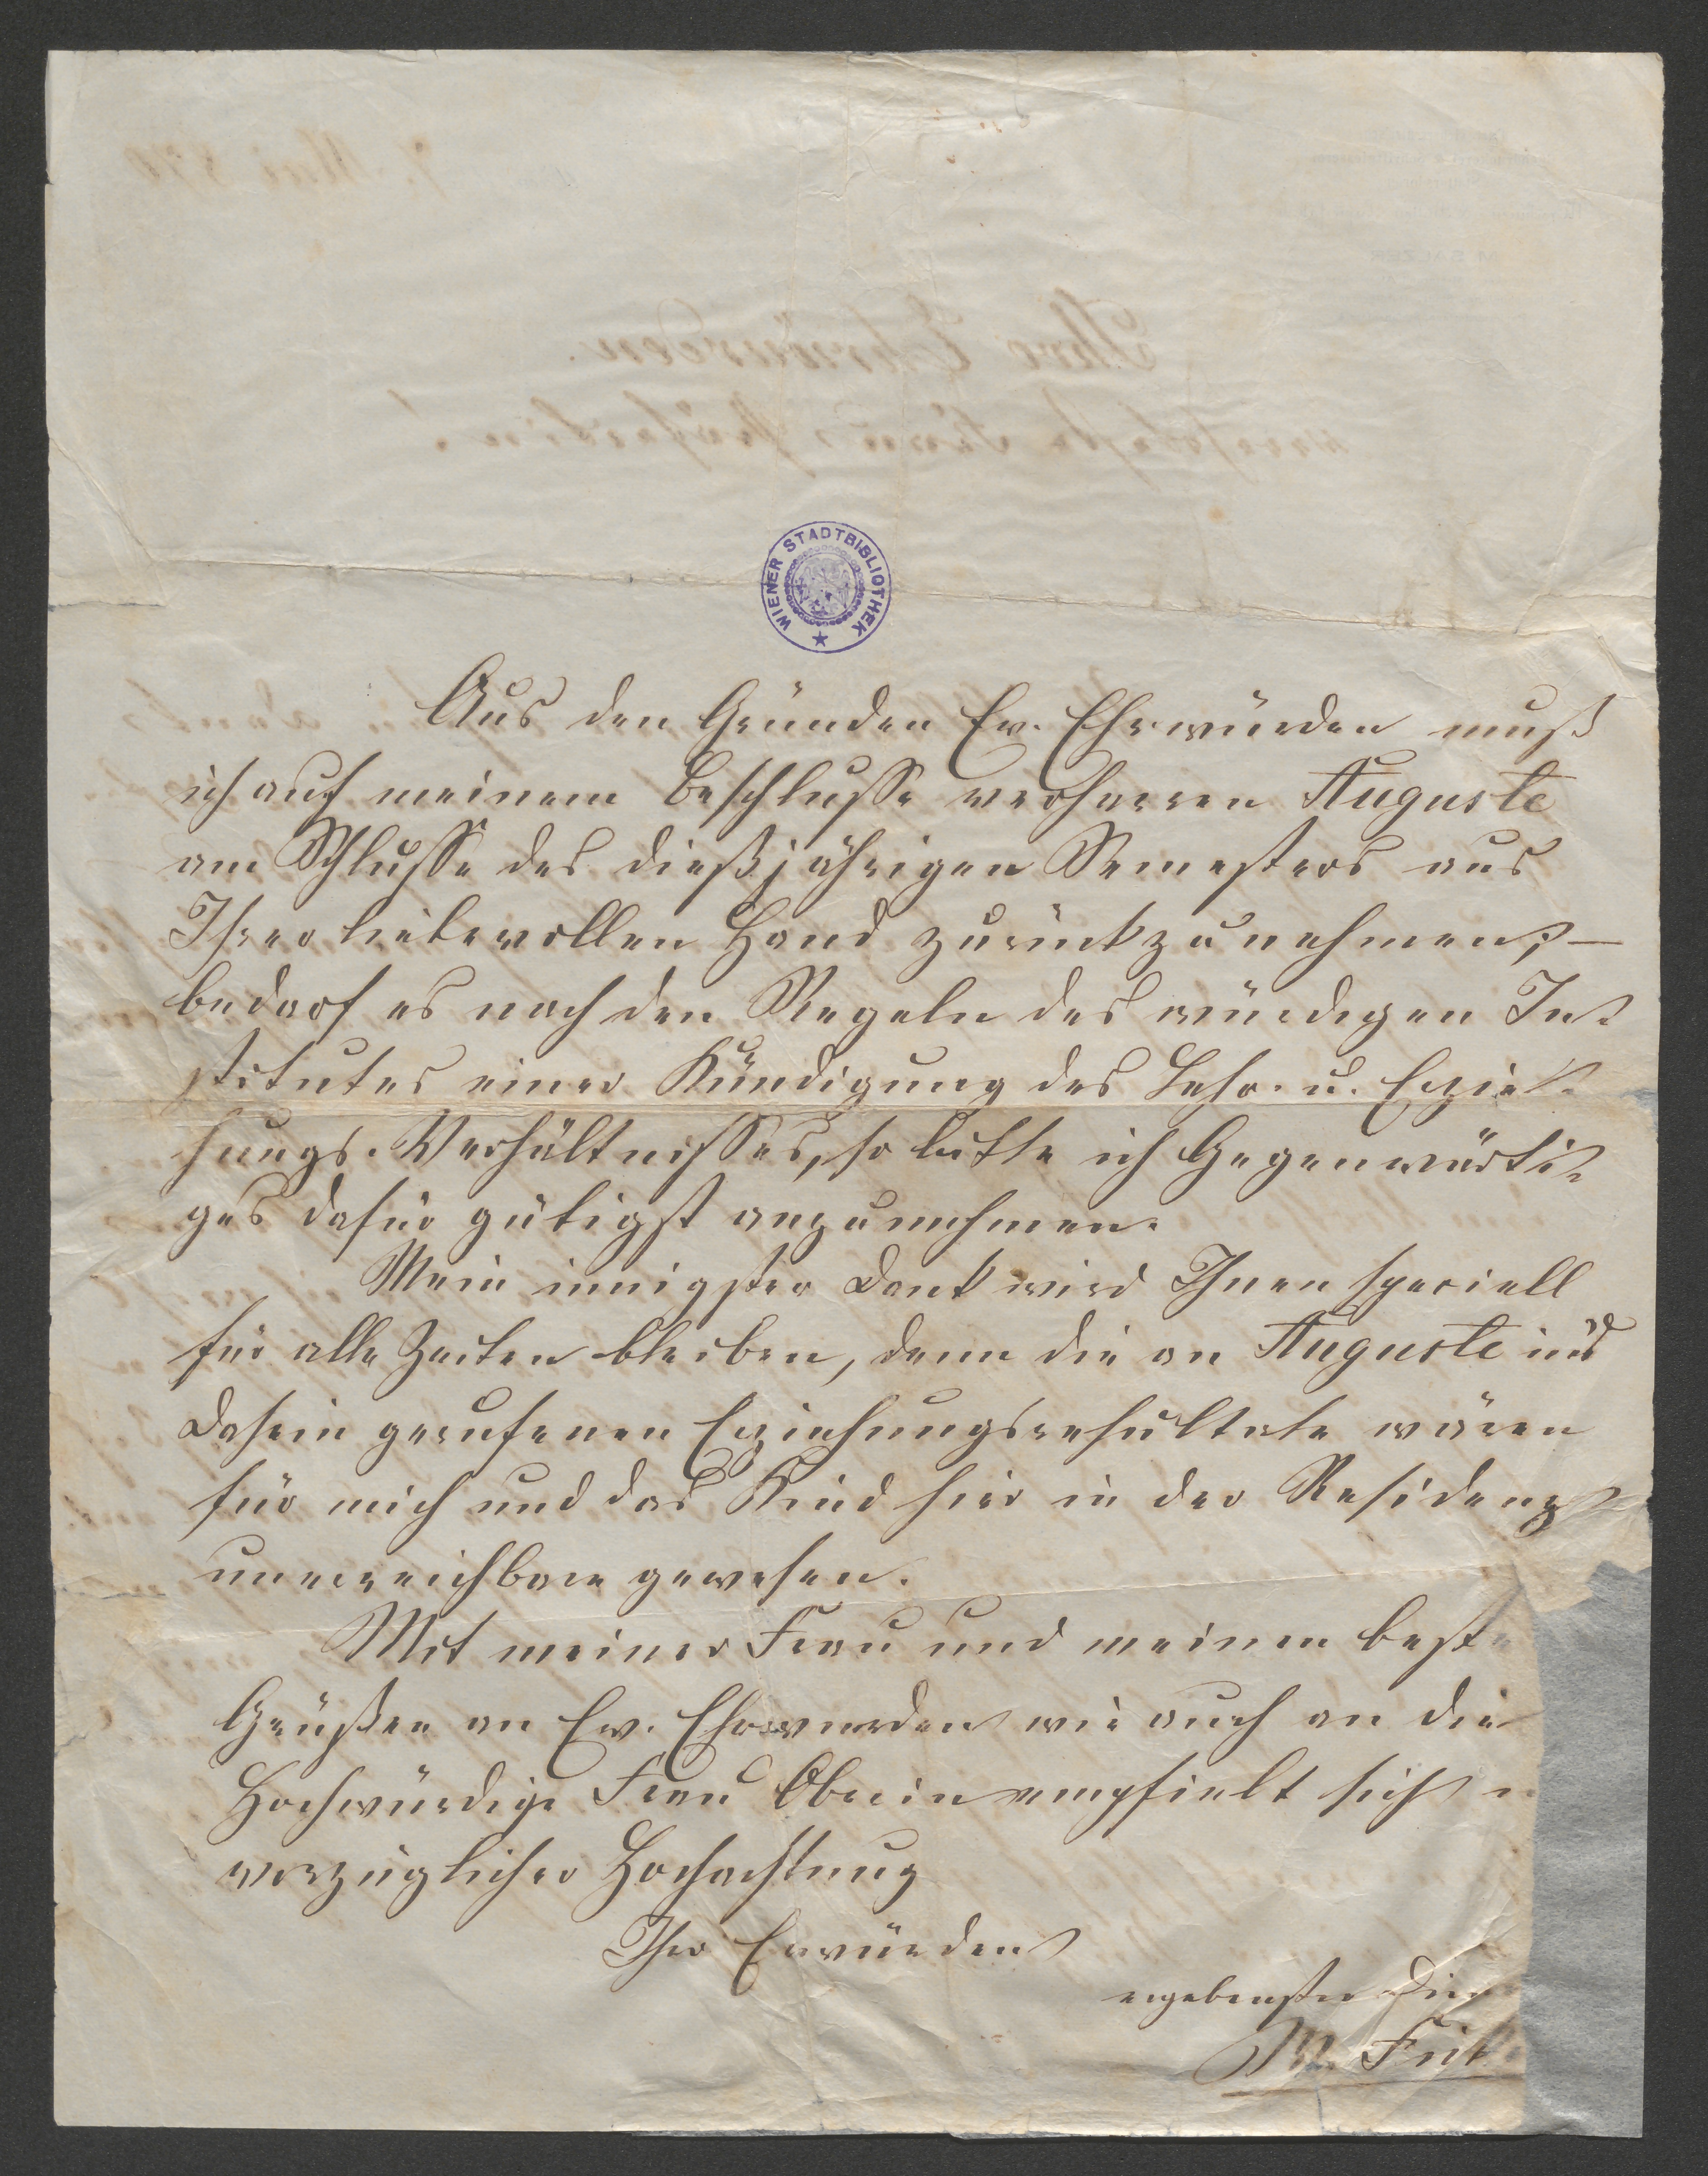 WIENER STADTBIBLIOTHEK
Aus den Gründen Ew. Ehrwürden muß
ich auf meinem Beschlusse verharren Auguste
am Schlusse des dießjährigen Semesters aus
Ihrer liebevollen Hand zurückzunehmen; –
bedarf es nach den Regeln des würdigen In-
stitutes einer Kündigung des Lehr- u. Erzie-
hungs-Verhältnisses, so bitte ich Gegenwärti-
ges dafür gütigst anzunehmen.
Mein innigster Dank wird Ihnen speciell
für alle Zeiten bleiben, denn die an Auguste ins
Dasein gerufenen Erziehungsresultate wären
für mich und das Kind hier in der Residenz
unerreichbare gewesen.
Mit meiner Frau und meinen beste
Grüßen an Ew. Ehrwürden wie auch an die
Hochwürdige Frau Oberin empfielt sich
vorzüglicher Hochachtung
Ihro Erwürden
ergebenster Dien
M. Fick